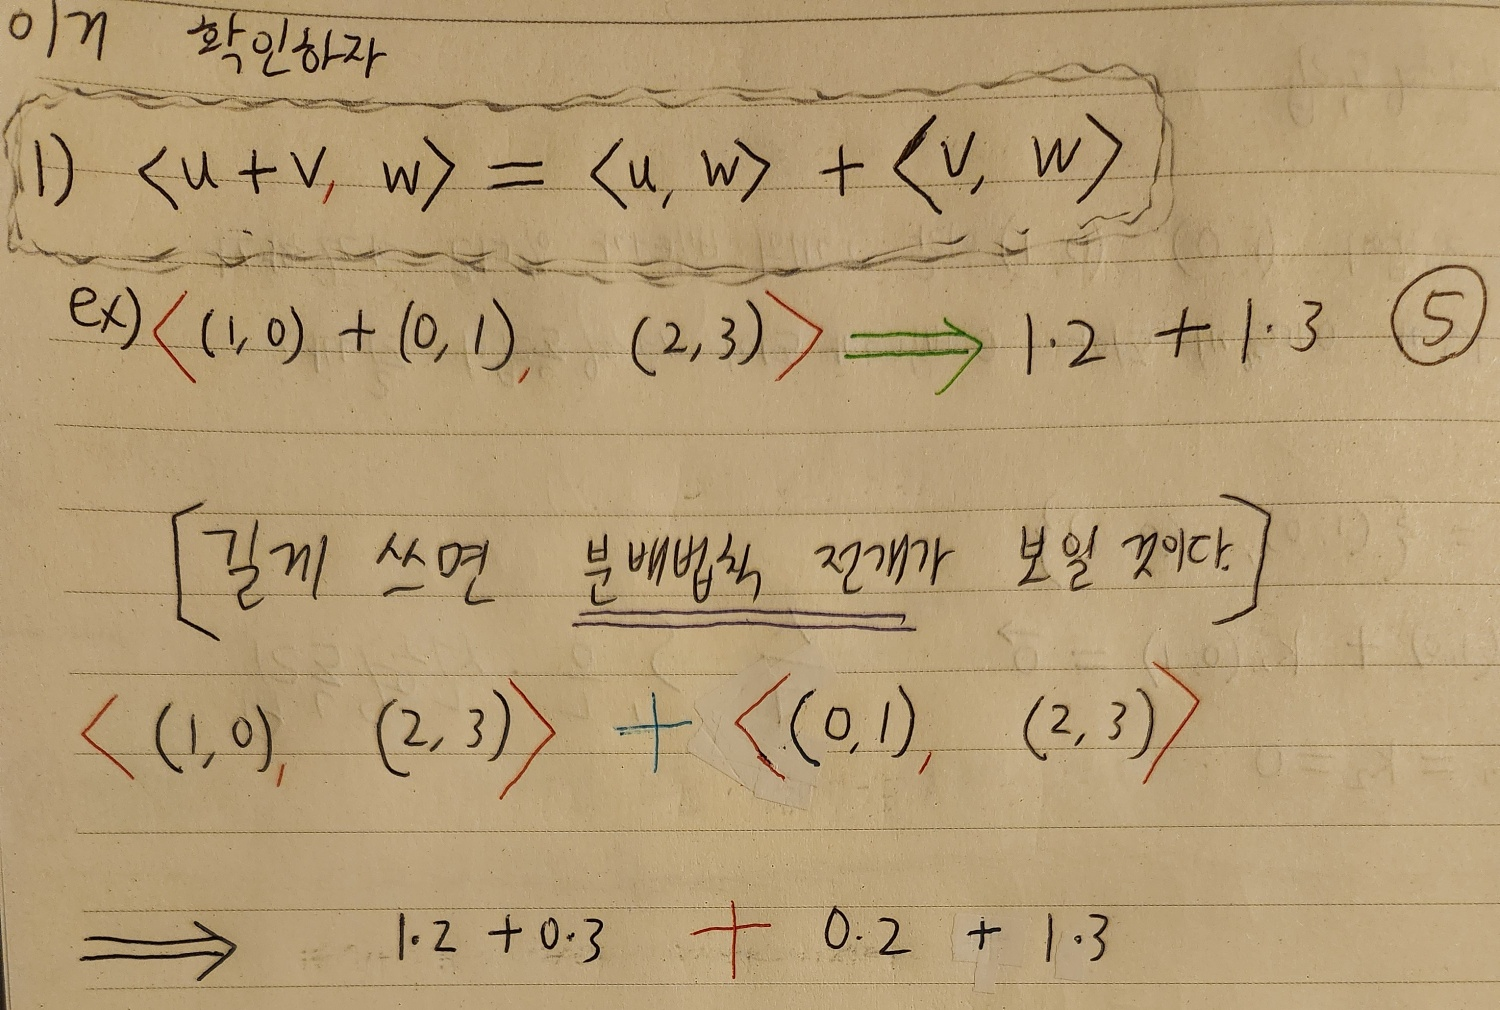 확인하자
1) <u+v, w> = <u, w> + <v, w>
ex) <(1,0) + (0,1), (2,3)> ⟹ 1·2 + 1·3 ⑤
[길게 쓰면 분배법칙 전개가 보일 것이다.]
<(1,0), (2,3)> + <(0,1), (2,3)>
⟹ 1·2 + 0·3 + 0·2 + 1·3